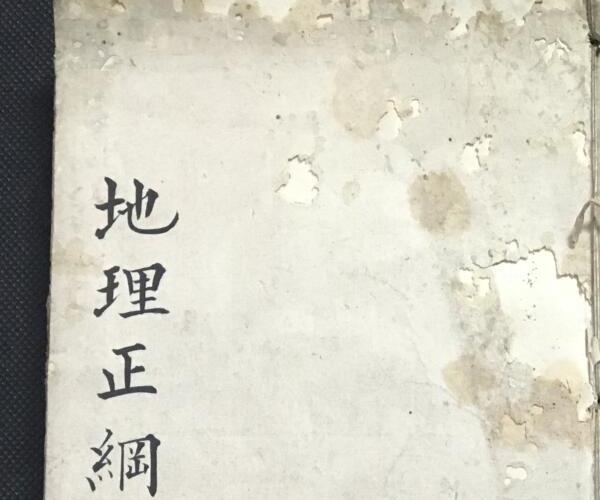 地理正綱